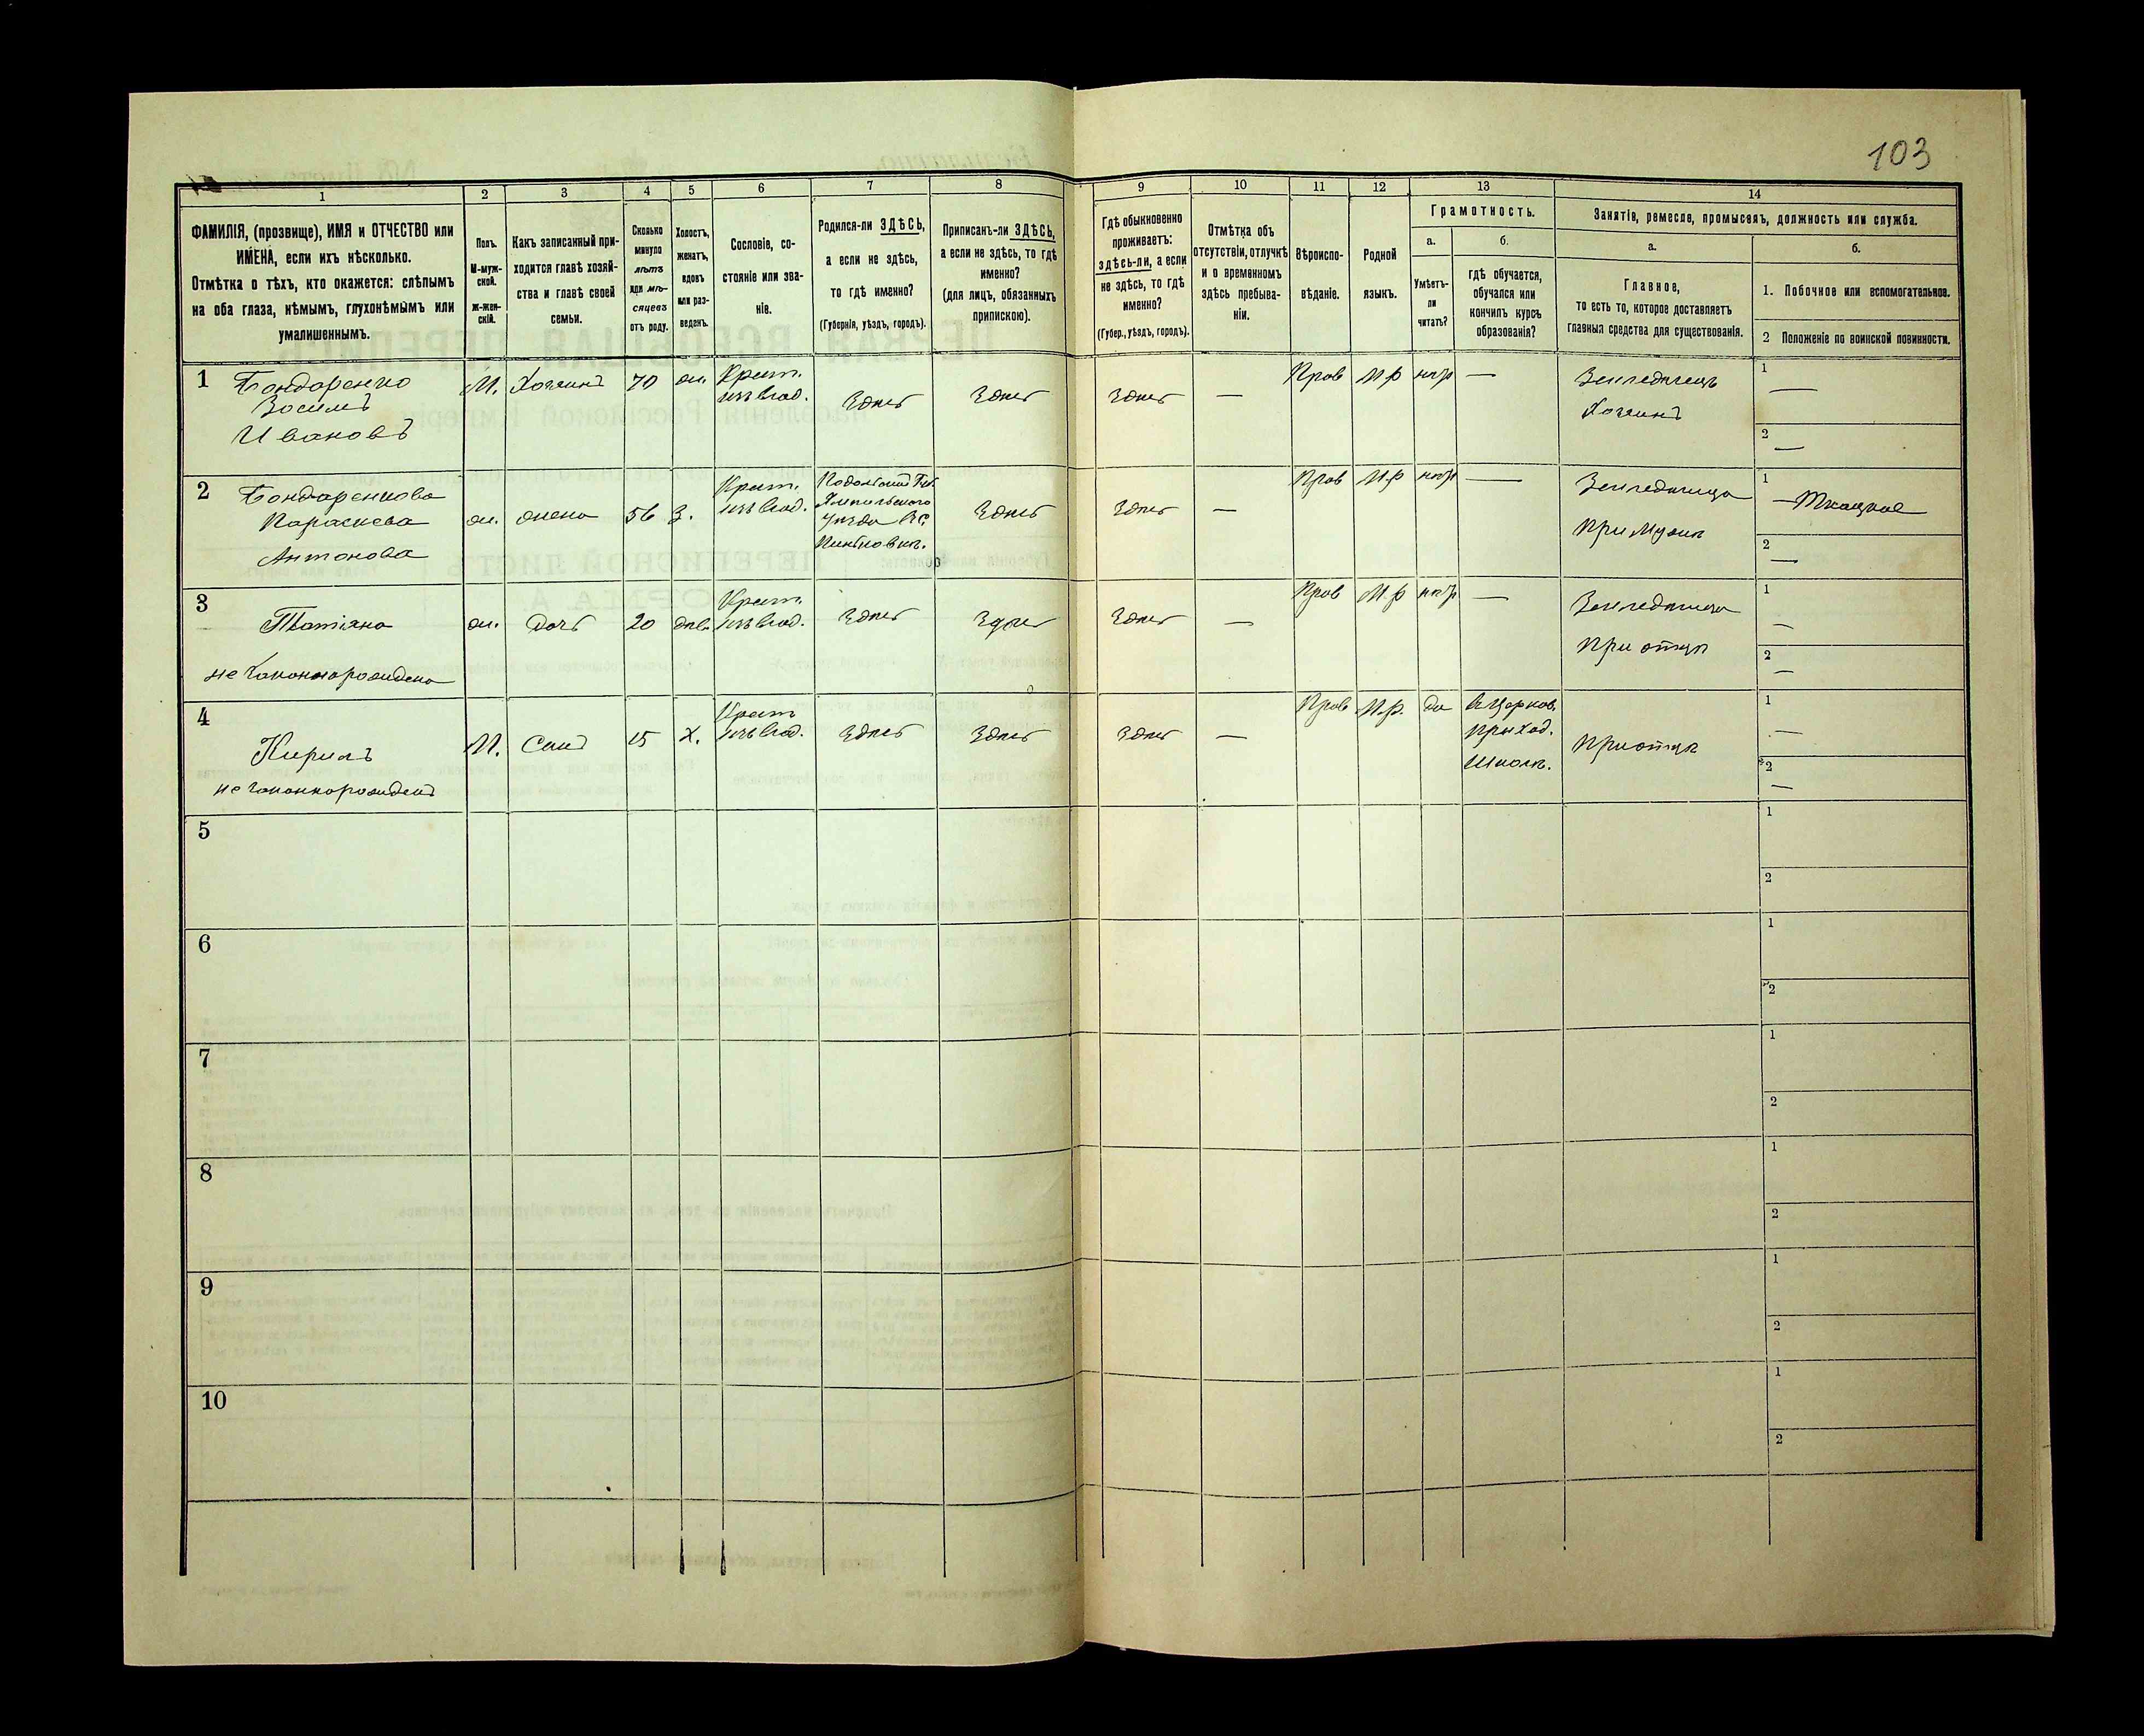 103
1
2
3
4
5
6
7
8
9
10
11
12
13
14
ФАМИЛІЯ, (прозвище), ИМЯ и ОТЧЕСТВО или
ИМЕНА, если ихъ нѣсколько.
Отмѣтка о тѣхъ, кто окажется: слѣпымъ
на оба глаза, нѣмымъ, глухонѣмымъ или
умалишеннымъ.
Полъ.
М-муж-
ской.
Ж-жен-
скій.
Какъ записанный при-
ходится главѣ хозяй-
ства и главѣ своей
семьи.
Сколько
минуло
лѣтъ
или мѣ-
сяцевъ
отъ роду.
Холостъ,
женатъ,
вдовъ
или раз-
веденъ.
Сословіе, со-
стояніе или зва-
ніе.
Родился-ли ЗДѢСЬ,
а если не здѣсь,
то гдѣ именно?
(Губернія, уѣздъ, городъ).
Приписанъ-ли ЗДѢСЬ,
а если не здѣсь, то гдѣ
именно?
(для лицъ, обязанныхъ
припискою).
Гдѣ обыкновенно
проживаетъ:
здѣсь-ли, а если
не здѣсь, то гдѣ
именно?
(Губер., уѣздъ, городъ).
Отмѣтка объ
отсутствіи, отлучкѣ
и о временномъ
здѣсь пребыва-
ніи.
Вѣроиспо-
вѣданіе.
Родной
языкъ.
Грамотность.
а.
Умѣетъ-
ли
читать?
б.
гдѣ обучается,
обучался или
кончилъ курсъ
образованія?
Занятіе, ремесло, промыселъ, должность или служба.
а.
Главное,
то есть то, которое доставляетъ
главныя средства для существованія.
б.
1. Побочное или вспомогательное.
2 Положеніе по воинской повинности.
1
Бондаренко
Зосимъ
Ивановъ
М.
Хозяинъ
70
ж.
Крест.
изъ влад.
Здѣсь
Здѣсь
Здѣсь
—
Прав
М.р
нѣтъ
—
Земледѣлецъ
Хозяинъ
1
—
2
—
2
Бондаренкова
Параскева
Антонова
ж.
жена
56
З.
Крест.
изъ влад.
Подольской Губ.
Ямпольскаго
Уѣзда
Здѣсь
Здѣсь
—
Прав
М.р
нѣтъ
—
Земледѣлица
При Мужѣ
1
— Ткацкое
2
—
3
Татіяна
незаконнорождена
ж.
дочь
20
дѣв.
Крест.
изъ влад.
Здѣсь
Здѣсь
Здѣсь
—
Прав
М.р
нѣтъ
—
Земледѣлица
При отцѣ
1
—
2
—
4
Кирилъ
незаконнорожденъ
М.
Сынъ
15
Х.
Крест
изъ влад.
Здѣсь
Здѣсь
Здѣсь
—
Прав
М.р.
да
въ Церков.
Приход.
Школѣ.
При отцѣ
1
—
2
—
5
1
2
6
1
2
7
1
2
8
1
2
9
1
2
10
1
2